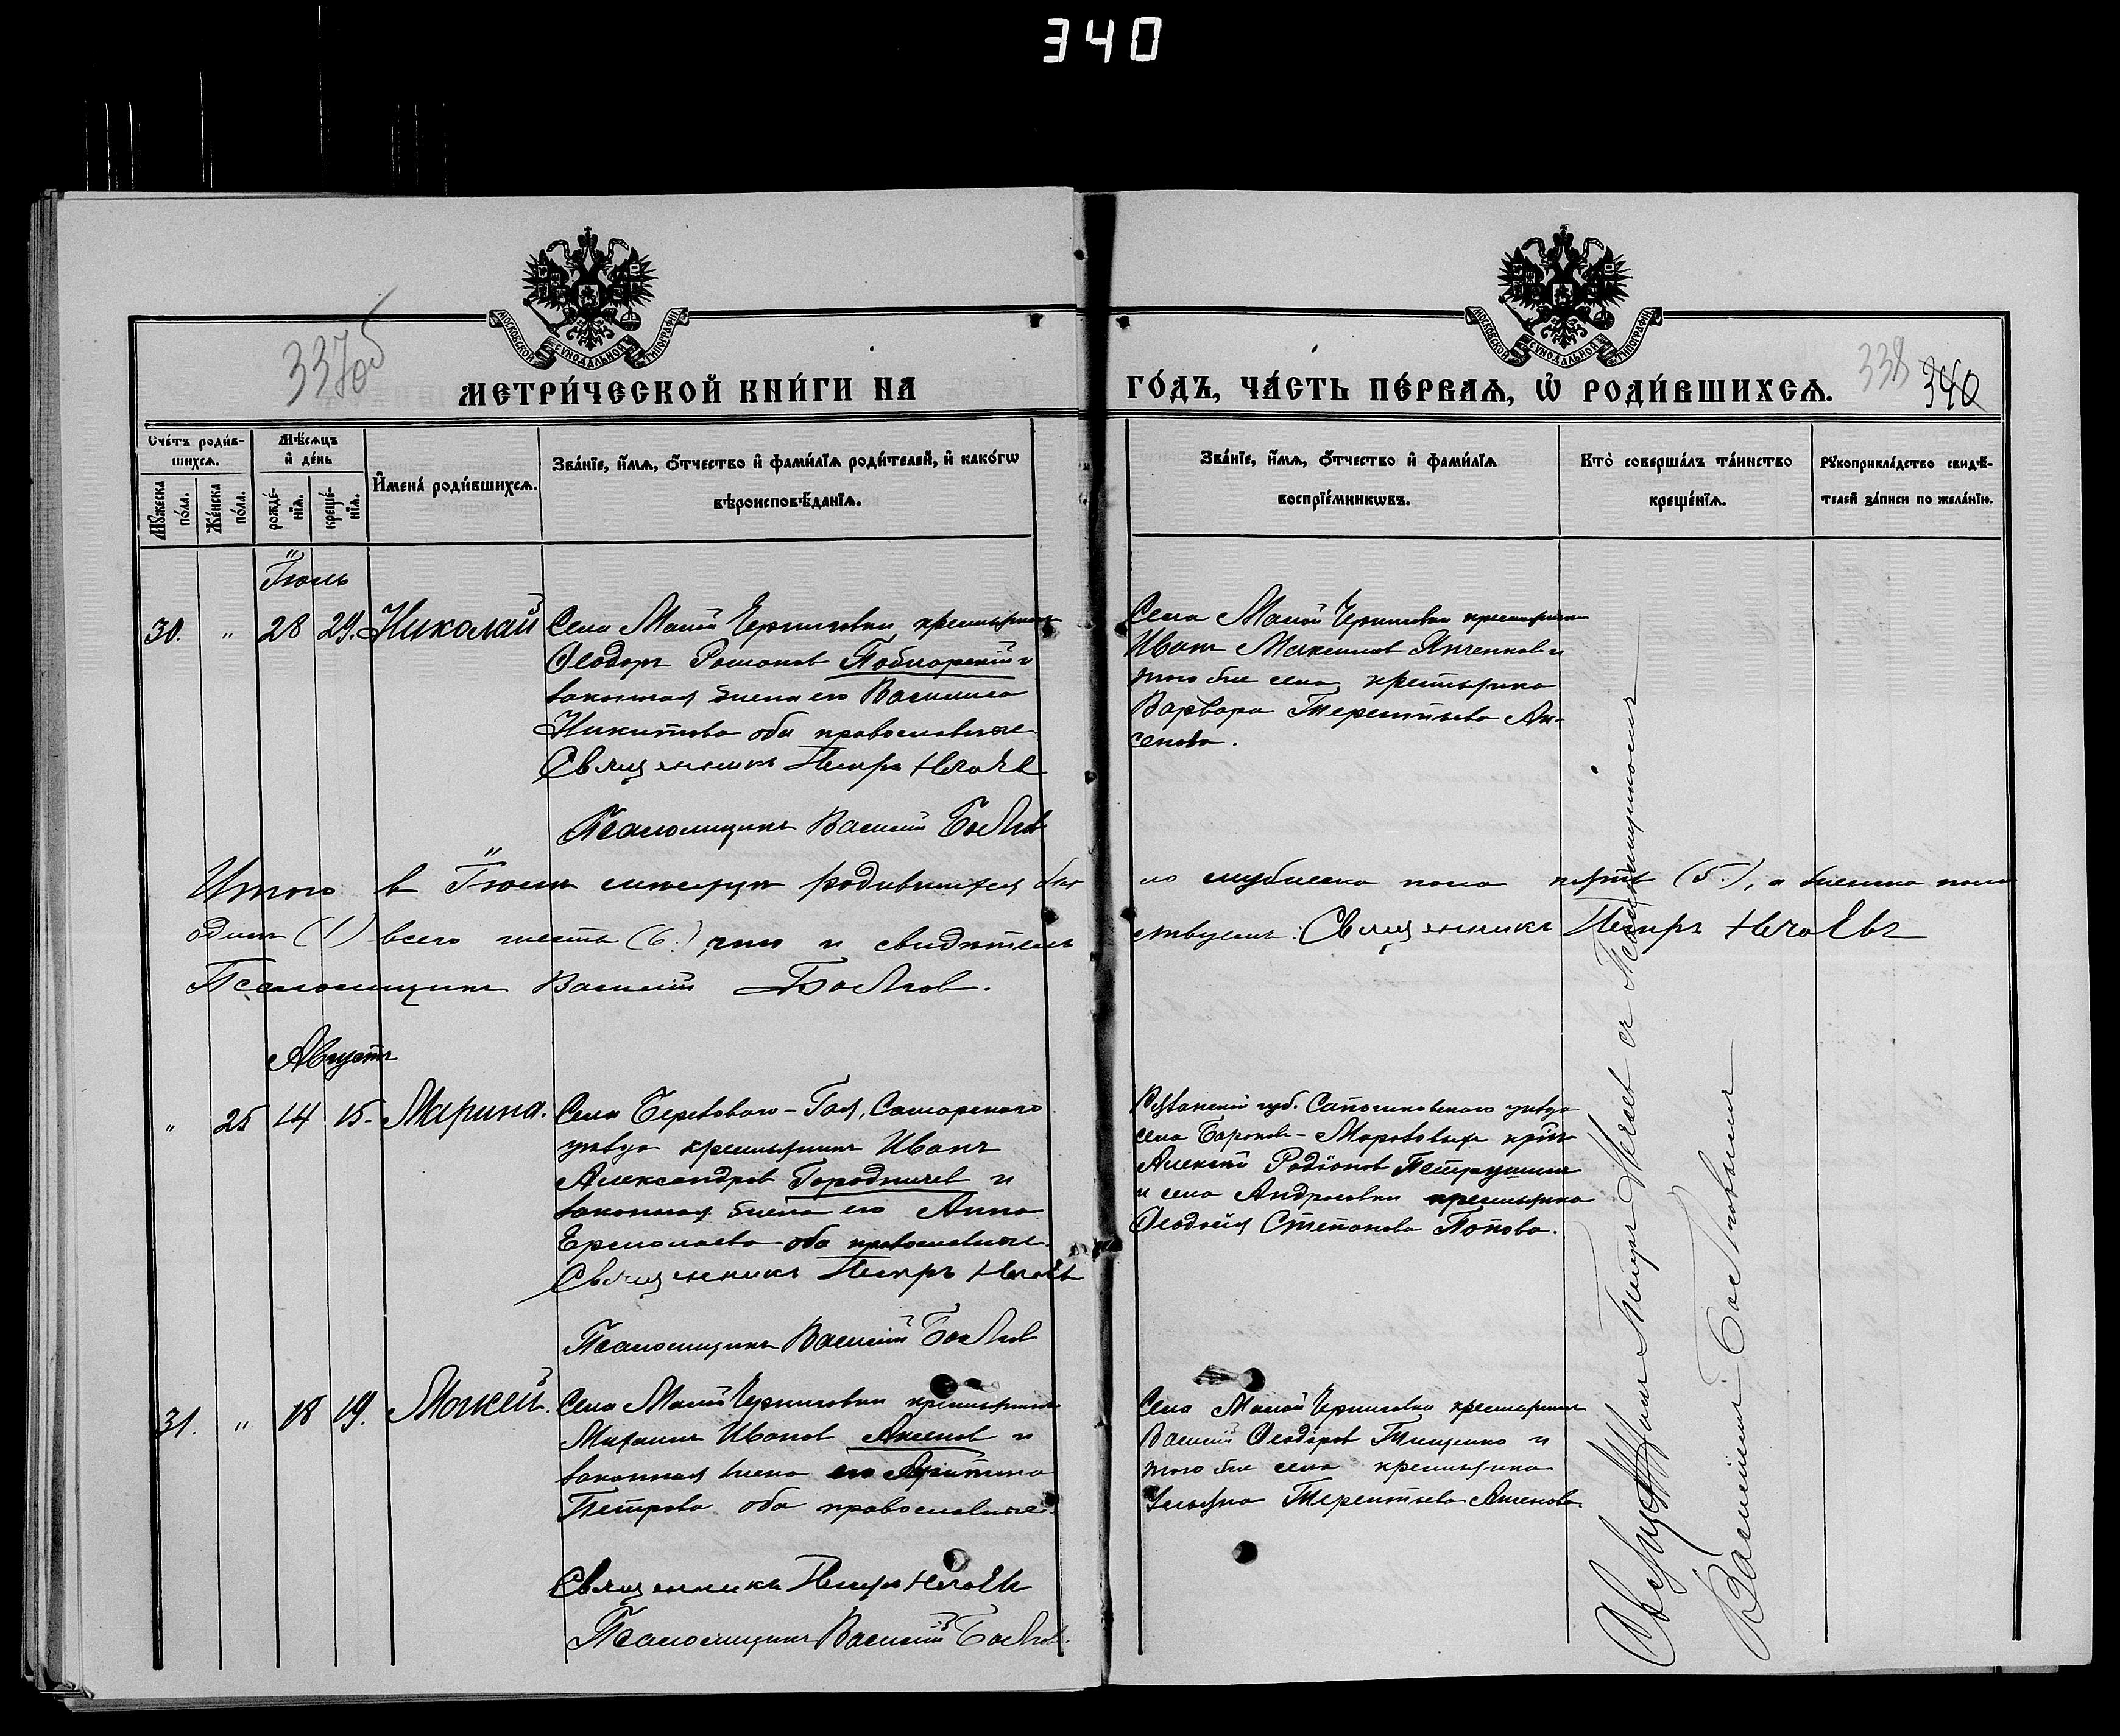 340
337об
МОСКОВСКОЙ СУНОДАЛЬНОЙ ТИПОГРАФІИ
МОСКОВСКОЙ СУНОДАЛЬНОЙ ТИПОГРАФІИ
МЕТРИ́ЧЕСКОЙ КНИ́ГИ НА ГО́ДЪ, ЧА́СТЬ ПЕ́РВАѦ, Ѽ РОДИ́ВШИХСѦ.
338 340
Сче́тъ роди́в-
шихсѧ.
Мꙋжеска по́ла.
Же́нска по́ла.
Мѣ́сѧцъ
и҆ де́нь
рожде́-
нїѧ.
креще́-
нїѧ.
И҆мена̀ роди́вшихсѧ.
Зва́нїе, и҆́мѧ, ѻ҆́тчество и҆ фами́лїѧ роди́телей, и҆ како́гѡ
вѣроисповѣ́данїѧ.
Зва́нїе, и҆́мѧ, ѻ҆́тчество и҆ фами́лїѧ
воспрїе́мникѡвъ.
Кто̀ соверша́лъ та́инство
креще́нїѧ.
Рꙋкоприкла́дство свидѣ́-
телей за́писи по жела́нїю.
Іюль
30. " 28 29. Николай
Села Малой Черниговки крестьянинъ
Ѳеодоръ Романов
законная жена его Василиса
Никитова оба православные
Священникъ Петръ Нечаевъ
Псаломщикъ Василій
Села Малой Черниговки крестьянин
Иван Максимов Янченков и
того же села крестьянка
Варвара Терентьева Ак-
сенова.
Итого в Іюлѣ мѣсяцѣ родившихся было мужеска пола пять (5.), а женска пола
один (1) всего шесть (6.) что и свидѣтельствуемъ: Священникъ Петръ Нечаевъ
Псаломщикъ Василій
Августъ
" 25 14 15. Марина.
Села Березоваго-Гая, Самарскаго
уѣзда крестьянинъ Иванъ
Александров Городничев и
законная жена его Анна
Ермолаева оба православные.
Священникъ Петръ Нечаевъ
Псаломщикъ Василій
Рязанской губ. Сапожковскаго уѣзда
села
Алексѣй Родіонов Петрушин
и села Андросовки крестьянка
Ѳеодосія Степанова Попова.
31. " 18 19. Моисей.
Села Малой Черниговки крестьянинъ
Михаилъ Иванов Аксенов и
законная жена его
Петрова оба православные.
Священникъ Петръ Нечаевъ
Псаломщикъ Василій
Села Малой Черниговки крестьянинъ
Василій Ѳеодоров Тищенко и
того же села крестьянка
Терентьева Аксенова.
Петръ Нечаевъ съ Псаломщикомъ
Василіемъ